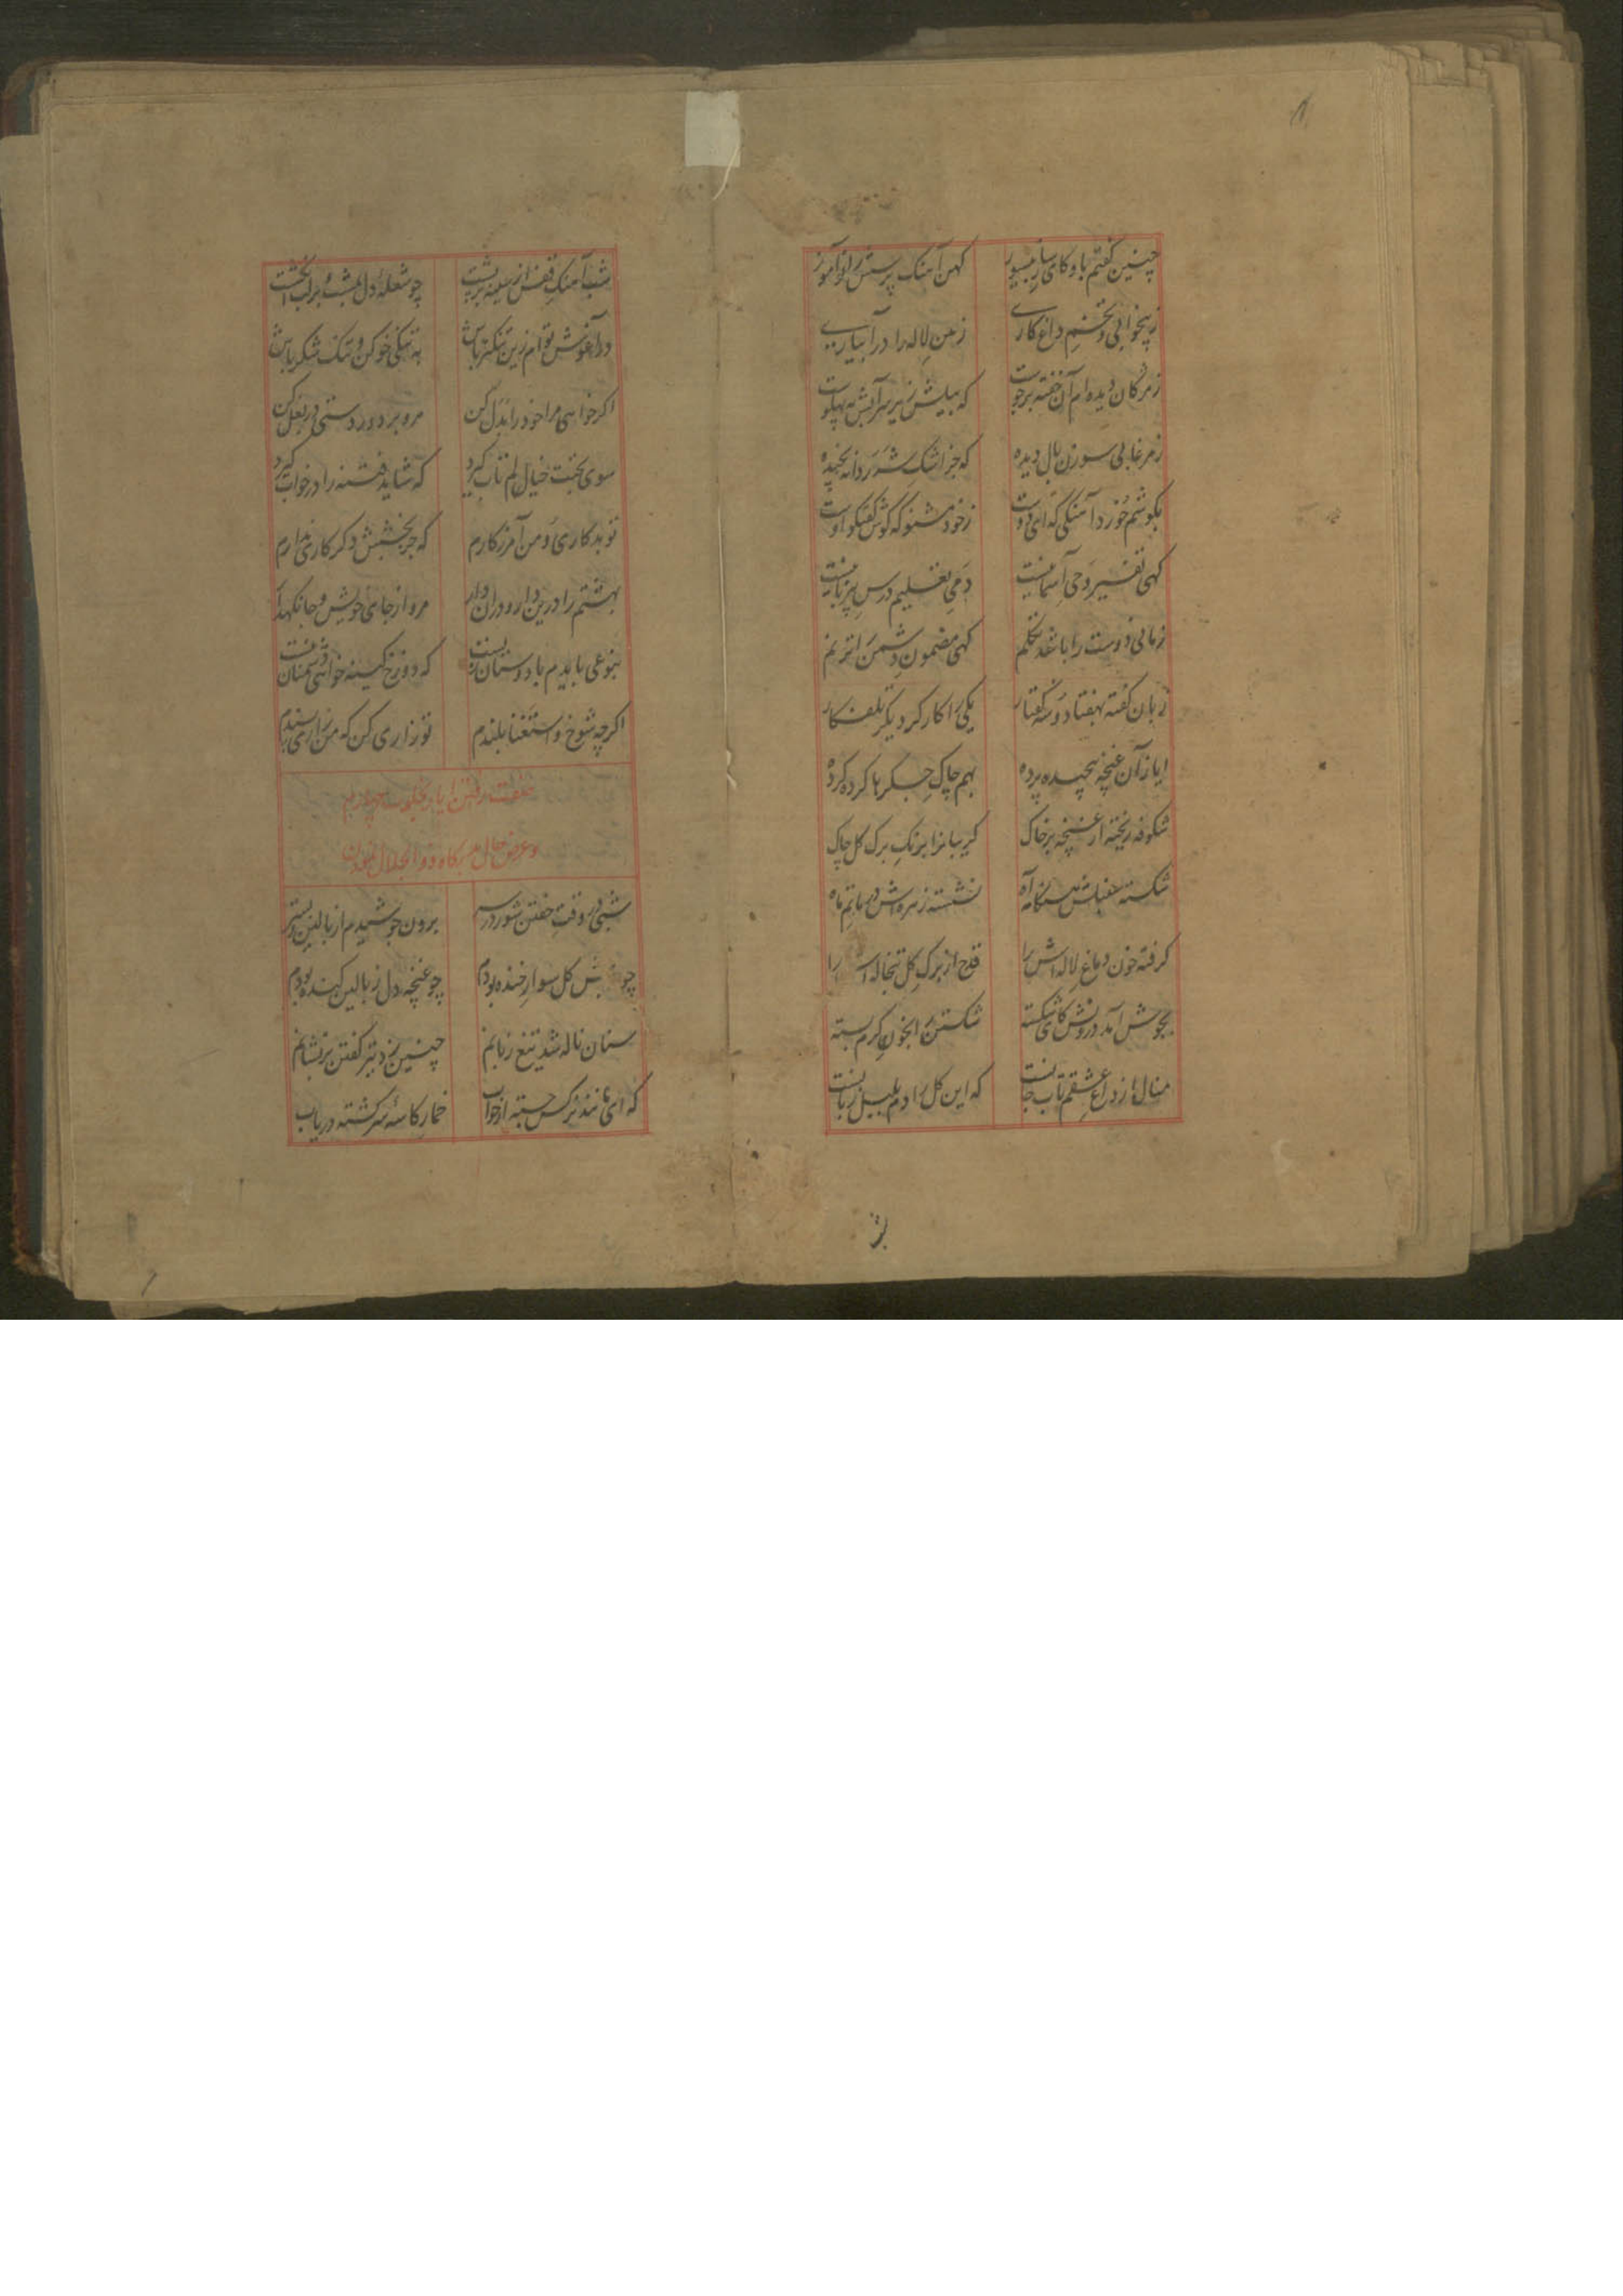 چنین گفتم باو کای ساز بیسوز کهن آهنک پرستش را نوآموز
ز بیخوابی و تخم داغ کاری زمین لاله را در آبیاری
ز مژکان دیده ام آن خفته بر جوست که بیلش زیر سر آبش به پهلوست
ز مرغابی سوزن بال دیده که جز اشک شرر دانه نچیده
بکوشم خورد آهنکی که ای دوست ز خود مشنو که کوش کفتکو اوست
کهی تفسیر وحی آسمانیست دمی تعلیم درس
زمانی دوست را باشد تکلم کهی مضمون دشمن را ترنم
زبان کفته بهفتاد و سه کفتار یکی را کار کر دیکر تلف کار
ایاز آن غنچه پیچیده پرده بهم چاک جکرها کرده کرده
شکوفه ریخته از غنچه بر خاک کریبانرا برنک برک کل چاک
شکسته هنکامه آه نشسته زهره اش در ماتم ماه
کرفته خون دماغ لاله اش را قدح از برک کل تبخاله اش را
بجوش آمد درونش کای شکسته شکستن را بخون کرم بسته
منال از داغ عشقم تاب جانست که این کل را دم بلبل زبانست
شب آهنک قفس از سینه بر پشت چو شعله دل بمشت و بر لب انکشت
در آغوش توام زین تنکتر باش به تنکی خو کن و تنک شکر باش
اکر خواهی مرا خود را بدل کن مرو بر دور دستی در بغل کن
سوی بختت خیالم تاب کیرد که شاید فتنه را در خواب کیرد
تو بدکاری و من آمرزکارم که جز بخشش دکر کاری ندارم
بهشتم را درین دار و دران دار مرو از جای خویش و جا نکهدار
بنوعی بایدم با دوستان زیست که دوزخ کینه خواهی دشمنان نیست
اکرچه شوخ و استغنا بلندم تو زاری کن که من زاری پسندم
صفت رفتن ایاز
و عرض حال بدرکاه ذو الجلال نمودن
شبی در وقت خفتن شور در سر برون جوشیدم از بالین و بستر
چو کل سوار خنده بودم چو غنچه دل ز بالین کنده بودم
سنان ناله شد تیغ زبانم چنین زد تیر کفتن بر نشانم
که ای مانند نرکس جسته از خواب خمار کاسه سر کشته دریاب
شب